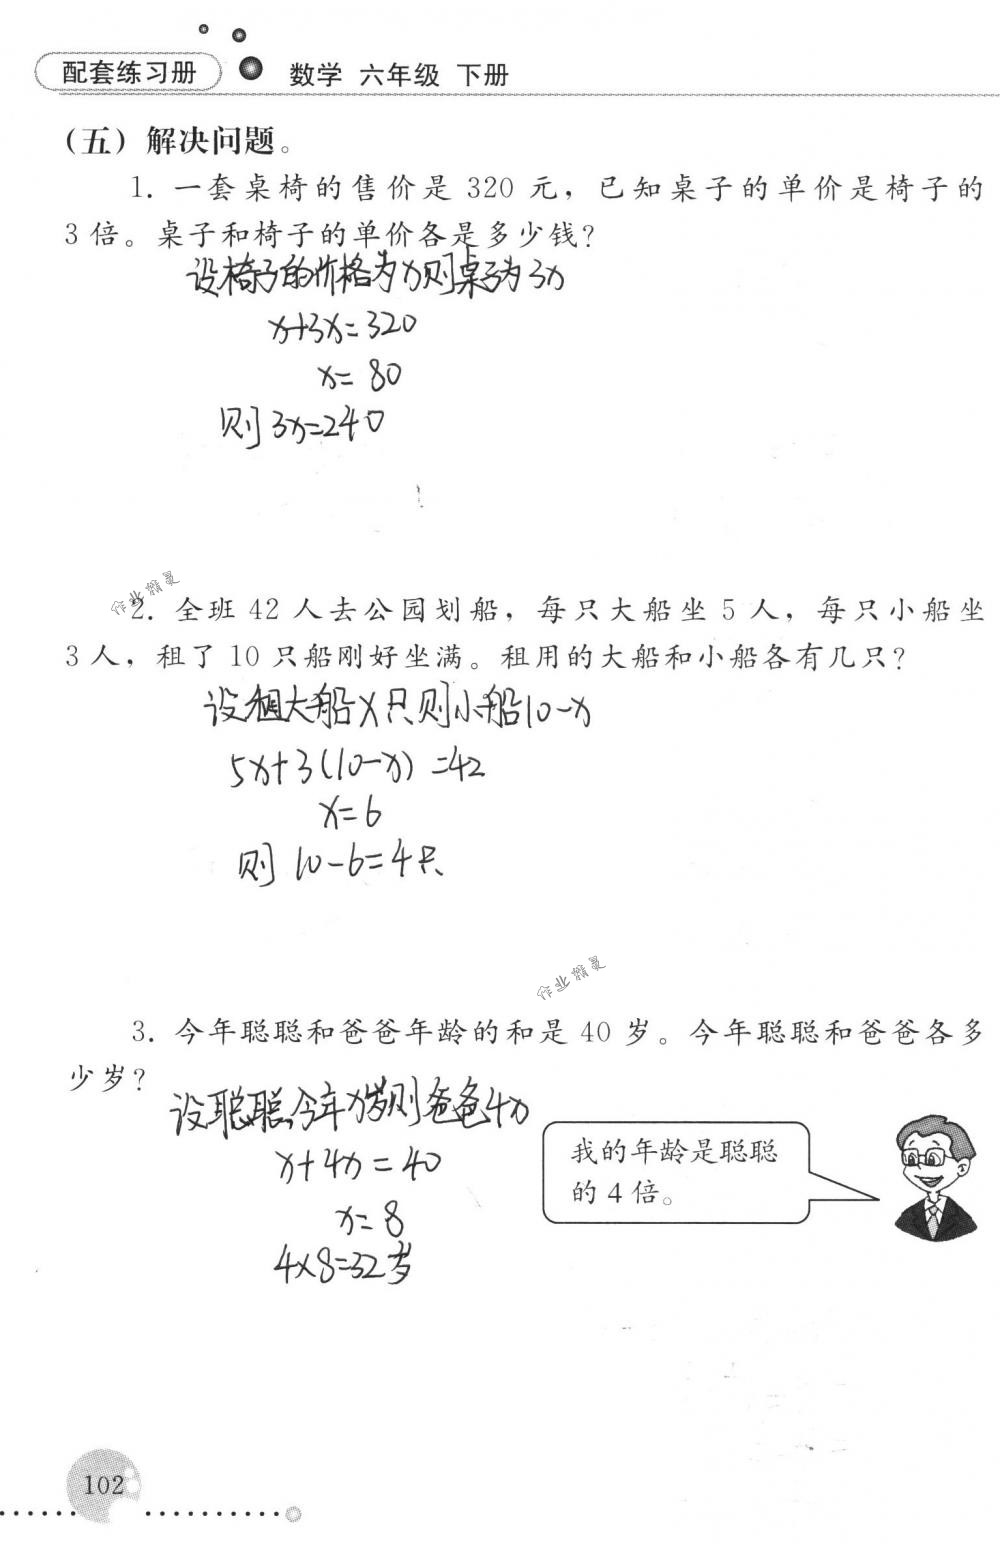 配套练习册 数学 六年级 下册
(五) 解决问题。
1. 一套桌椅的售价是 320 元，已知桌子的单价是椅子的
3 倍。桌子和椅子的单价各是多少钱?
设椅子的价格为x则桌子为3x
x+3x=320
x=80
则3x=240
作业精灵
2. 全班 42 人去公园划船，每只大船坐 5 人，每只小船坐
3 人，租了 10 只船刚好坐满。租用的大船和小船各有几只?
设租大船x只则小船10-x
5x+3(10-x)=42
x=6
则 10-6=4只
作业精灵
3. 今年聪聪和爸爸年龄的和是 40 岁。今年聪聪和爸爸各多
少岁?
设聪聪今年x岁则爸爸4x
x+4x=40
x=8
4×8=32岁
我的年龄是聪聪
的 4 倍。
102